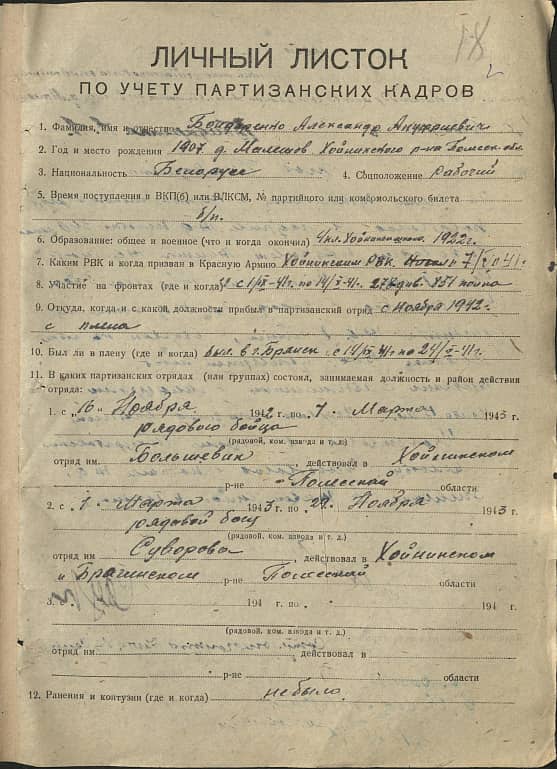 18
ЛИЧНЫЙ ЛИСТОК
ПО УЧЕТУ ПАРТИЗАНСКИХ КАДРОВ
1. Фамилия, имя и отчество Бондаренко Александр Ануфриевич
2. Год и место рождения 1907 д. Малешов Хойникского р-на Полесск. обл.
3. Национальность Беларусс 4. Соцположение Рабочий
5. Время поступления в ВКП(б) или ВЛКСМ, № партийного или комсомольского билета
б/п.
6. Образование: общее и военное (что и когда окончил) 4 кл. 1922 г.
7. Каким РВК и когда призван в Красную Армию Хойникским РВК
8. Участие на фронтах (где и когда) с 1/IX-41г. по 14/X-41г.
9. Откуда, когда и с какой должности прибыл в партизанский отряд с Ноября 1942
с плена
10. Был ли в плену (где и когда) был в г. Брянск
11. В каких партизанских отрядах (или группах) состоял, занимаемая должность и район действия
отряда:
1. с 16 Ноября 1942 г по 7 Марта 1943 г.
рядового бойца
(рядовой, ком. взвода и т. д.)
отряд им Большевик, действовал в Хойникском
р-не Полесской области
2. с 7 Марта 1943 г по 29 Ноября 1943 г.
рядовой боец
(рядовой, ком. взвода и т. д.)
отряд им Суворова, действовал в Хойникском
и Брагинском р-не Полесской области
3. с 194 г. по 194 г.
(рядовой, ком. взвода и т. д.)
отряд им. действовал в
р-не области
12. Ранения и контузии (где и когда) не было.